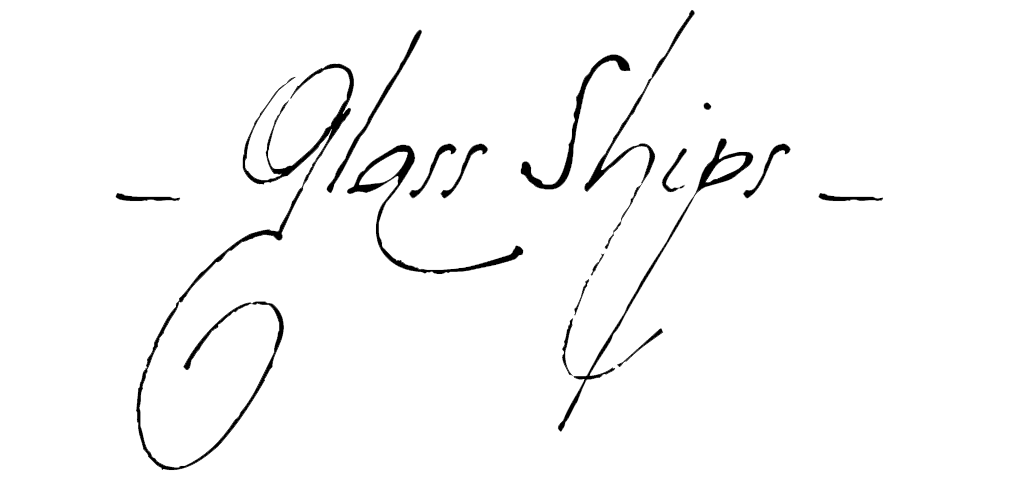 - Glass Ships -